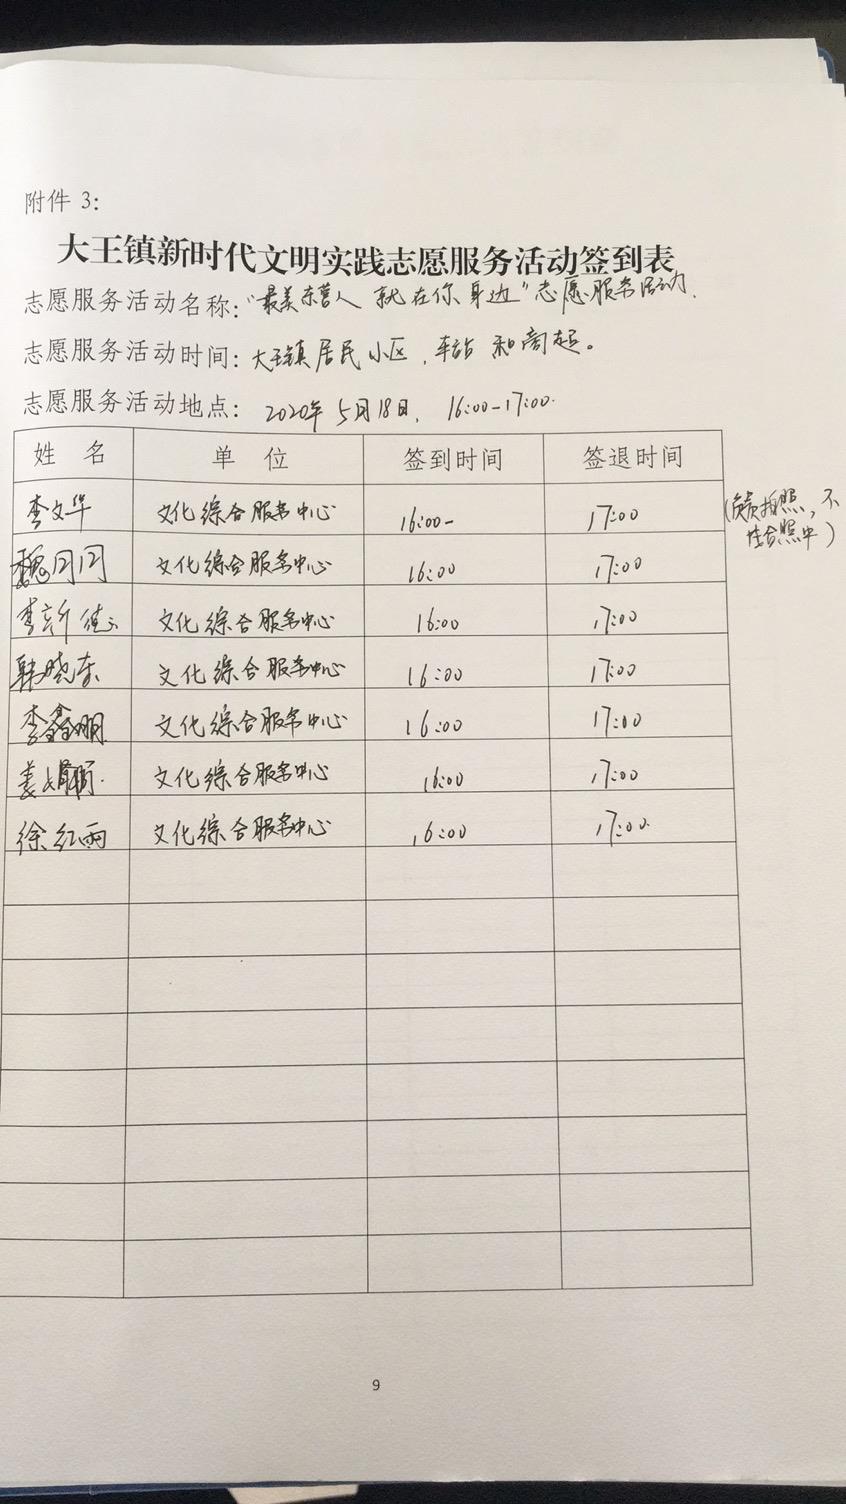 附件 3:
大王镇新时代文明实践志愿服务活动签到表
志愿服务活动名称:“最美东营人 就在你身边”志愿服务活动.
志愿服务活动时间:大王镇居民小区,车站和商超。
志愿服务活动地点: 2020年5月18日, 16:00-17:00.
姓 名 单 位 签到时间 签退时间
李文华 文化综合服务中心 16:00- 17:00 (负责拍照,不
在合照中)
魏闪闪 文化综合服务中心 16:00 17:00
李新 文化综合服务中心 16:00 17:00
韩晓东 文化综合服务中心 16:00 17:00
李鑫明 文化综合服务中心 16:00 17:00
姜 文化综合服务中心 16:00 17:00
徐红雨 文化综合服务中心 16:00 17:00.
9